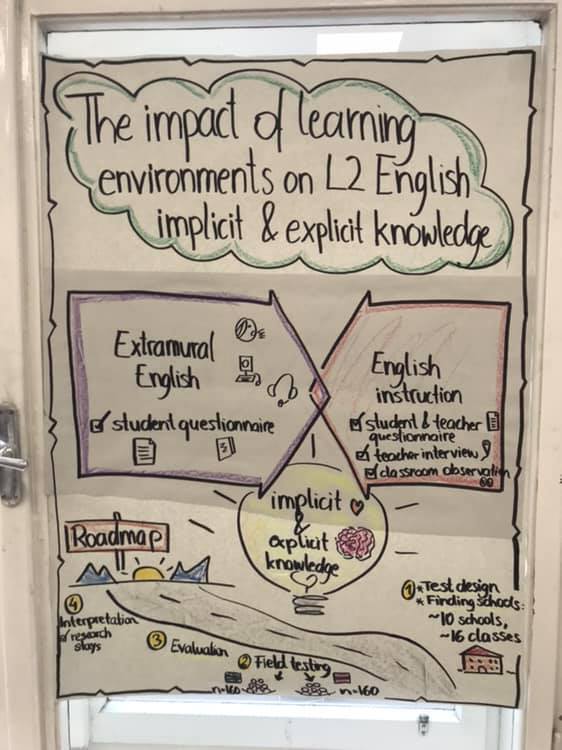 The impact of learning
environments on L2 English
implicit & explicit knowledge
Extramural
English
student questionnaire
English
instruction
student & teacher
questionnaire
teacher interview
classroom observation
implicit
&
explicit
knowledge
Roadmap
① * Test design
* Finding schools:
~10 schools,
~16 classes
② Field testing
n=160
n=160
③ Evaluation
④
Interpretation
& research
stays